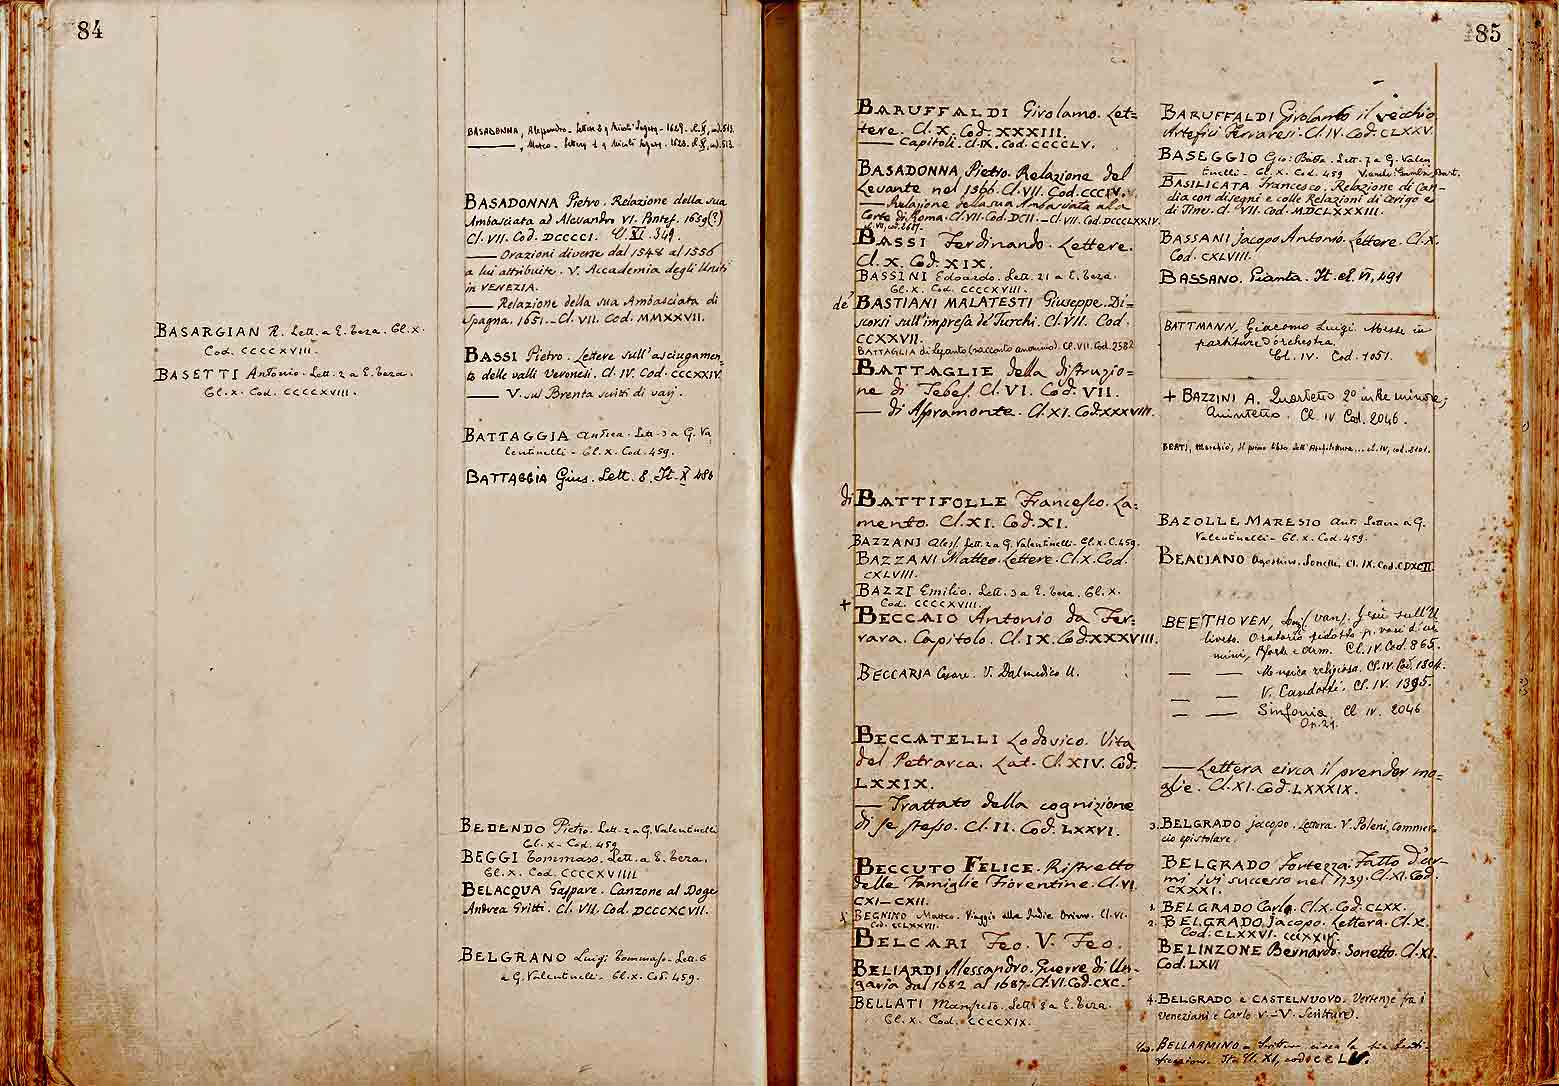 84
BASARGIAN R. Lett. a E. Teza. Cl. X.
Cod. CCCCXVIII.
BASETTI Antonio. Lett. 2 a E. Teza.
Cl. X. Cod. CCCCXVIII.
BASADONNA, Alessandro - Lettera - 1629. cl. X, cod. 513.
——, Marco - Lettera 1 - 1628. cl. X, cod. 513.
BASADONNA Pietro. Relazione della sua
Ambasciata ad Alessandro VI. Pontef. 1659(?)
Cl. VII. Cod. DCCCCI. Cl. XI. 349.
—— Orazioni diverse dal 1548 al 1556
a lui attribuite. V. Accademia degli Uniti
in VENEZIA.
—— Relazione della sua Ambasciata di
Spagna. 1651. - Cl. VII. Cod. MMXXVII.
BASSI Pietro. Lettere sull'asciugamen
to delle valli Veronesi. Cl. IV. Cod. CCCXXIV.
—— V. sul Brenta scritti di varj.
BATTAGGIA Andrea. Lett. 3 a G. Va
lentinelli - Cl. X. Cod. 459.
BATTAGGIA Gius. Lett. 8. It. X 486
BEDENDO Pietro. Lett. 2 a G. Valentinelli
Cl. X - Cod. 459
BEGGI Tommaso. Lett. a E. Teza.
Cl. X. Cod. CCCCXVIIII
BELACQUA Gaspare. Canzone al Doge
Andrea Gritti. Cl. VII. Cod. DCCCXCVII.
BELGRANO Luigi Tommaso. Lett. 6
a G. Valentinelli - Cl. X. Cod. 459.
85
BARUFFALDI Girolamo. Let=
tere. Cl. X. Cod. XXXIII.
—— Capitoli. Cl. IX. Cod. CCCCLV.
BASADONNA Pietro. Relazione del
Levante nel 1566. Cl. VII. Cod. CCCIV.
—— Relazione della sua Ambasciata alla
Corte di Roma. Cl. VII. Cod. DCII. - Cl. VII. Cod. DCCCLXXIV.
BASSI Ferdinando. Lettere.
Cl. X. Cod. XIX.
BASSINI Edoardo. Lett. 21 a E. Teza.
Cl. X. Cod. CCCCXVIII.
de' BASTIANI MALATESTI Giuseppe. Di=
scorsi sull'impresa de' Turchi. Cl. VII. Cod.
CCXXVII.
BATTAGLIA di Lepanto (racconto anonimo). Cl. VII. Cod. 2582
BATTAGLIE della distruzio=
ne di Tebes. Cl. VI. Cod. VII.
—— di Aspramonte. Cl. XI. Cod. XXXVIII.
di BATTIFOLLE Francesco. La=
mento. Cl. XI. Cod. XI.
BAZZANI Aless. Lett. 2 a G. Valentinelli - Cl. X. C. 459.
BAZZANI Matteo. Lettere. Cl. X. Cod.
CXLVIII.
BAZZI Emilio. Lett. 3 a E. Teza. Cl. X.
Cod. CCCCXVIII.
+ BECCAIO Antonio da Fer=
rara. Capitolo. Cl. IX. Cod. XXXVIII.
BECCARIA Cesare. V. Dalmedico U.
BECCATELLI Lodovico. Vita
del Petrarca. Lat. Cl. XIV. Cod.
LXXIX.
—— Trattato della cognizione
di se stesso. Cl. II. Cod. LXXVI.
BECCUTO FELICE. Ristretto
delle Famiglie Fiorentine. Cl. VI.
CXI - CXII.
BEGNINO Matteo. Viaggio alle Indie Orien. Cl. VI.
Cod. CCLXXVII.
BELCARI Feo. V. Feo.
BELIARDI Alessandro. Guerre di Un=
garia dal 1682 al 1687. Cl. VI. Cod. CXC.
BELLATI Manfredo. Lett. 8 a E. Teza.
Cl. X. Cod. CCCCXIX.
BARUFFALDI Girolamo il vecchio
Artefici Ferraresi. Cl. IV. Cod. CLXXV.
BASEGGIO Gio: Batta. Lett. 7 a G. Valen
tinelli - Cl. X. Cod. 459
BASILICATA Francesco. Relazione di Can=
dia con disegni e colle Relazioni di Cerigo e
di Tine. Cl. VII. Cod. MDCLXXXIII.
BASSANI Jacopo Antonio. Lettere. Cl. X.
Cod. CXLVIII.
BASSANO. Pianta. It. cl. VI, 491
BATTMANN, Giacomo Luigi. Messe in
partitura d'orchestra.
Cl. IV. Cod. 1051.
+ BAZZINI A. Quartetto 2º in Re minore;
Quintetto. Cl. IV Cod. 2046.
BEATI, Marchiò, Il primo libro dell'Architettura... cl. IV, cod.
BAZOLLE MARESIO Ant. Lettera a G.
Valentinelli - Cl. X. Cod. 459.
BEACIANO Agostino. Sonetti. Cl. IX. Cod. CDXCII.
BEETHOVEN, Luig. (van). Gesù sull'U
liveto. Oratorio ridotto p. voci d'uo
mini, Cl. IV. Cod. 865.
—— —— Musica religiosa. Cl. IV. Cod. 1304.
—— —— V. Candotti. Cl. IV. 1395.
—— —— Sinfonia. Cl. IV. 2046
Op. 21.
—— Lettera circa il prender mo=
glie. Cl. XI. Cod. LXXXIX.
3. BELGRADO Jacopo. Lettera. V. Poleni, Commer=
cio epistolare.
BELGRADO Fortezza. Fatto d'ar=
mi ivi successo nel 1739. Cl. XI. Cod.
CXXXI.
1. BELGRADO Carlo. Cl. X. Cod. CLXX.
2. BELGRADO Jacopo. Lettera. Cl. X.
Cod. CLXXVI.
BELINZONE Bernardo. Sonetto. Cl. XI.
Cod. LXVI
4. BELGRADO e CASTELNUOVO. Vertenze fra i
Veneziani e Carlo V. - V. Scritture.
BELLARMINO - Scritture circa la